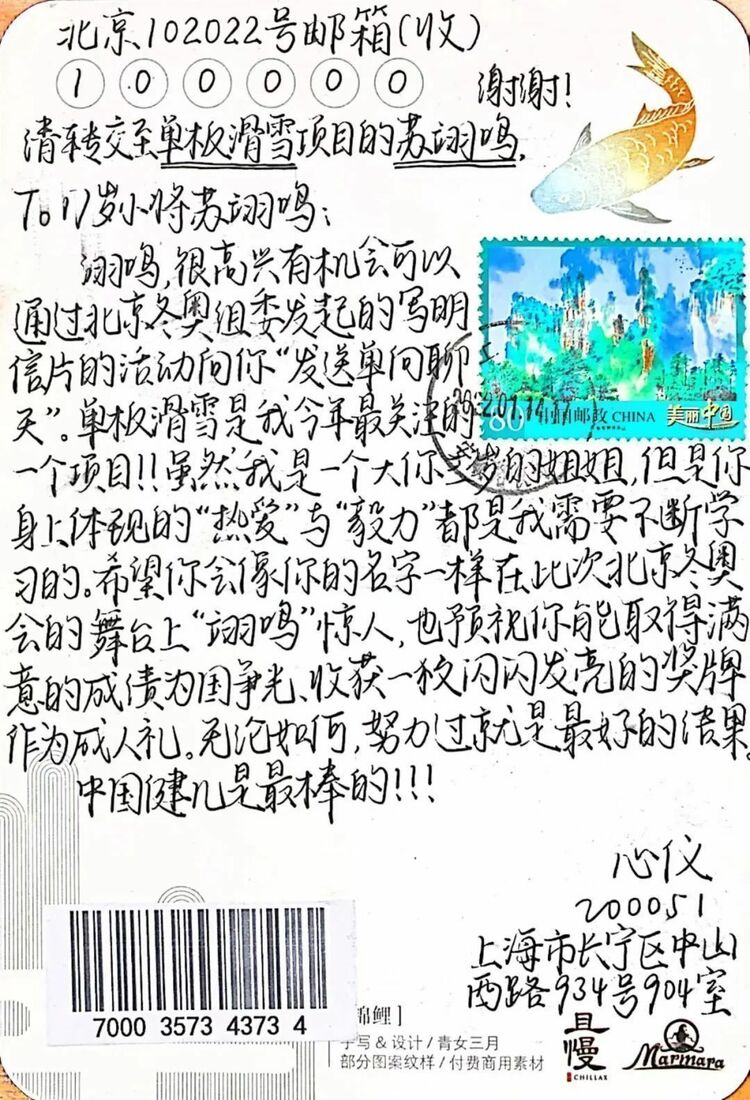 北京102022号邮箱(收)
100000
谢谢!
请转交至单板滑雪项目的苏翊鸣,
To 17岁小将苏翊鸣:
翊鸣,很高兴有机会可以
通过北京冬奥组委发起的写明
信片的活动向你“发送单向聊
天”。单板滑雪是我今年最关注的
80 中国邮政 CHINA 美丽中国
一个项目!!虽然我是一个大你 岁的姐姐,但是你
身上体现的“热爱”与“毅力”都是我需要不断学
习的。希望你会像你的名字一样在此次北京冬奥
会的舞台上“翊鸣”惊人,也预祝你能取得满
意的成绩为国争光、收获一枚闪闪发亮的奖牌
作为成人礼。无论如何,努力过就是最好的结果。
中国健儿是最棒的!!!
心仪
200051
上海市长宁区中山
西路934号904室
7000 3573 4373 4
锦鲤]
手写 & 设计 / 青女三月
部分图案纹样 / 付费商用素材
且慢
CHILLAX
Marmara